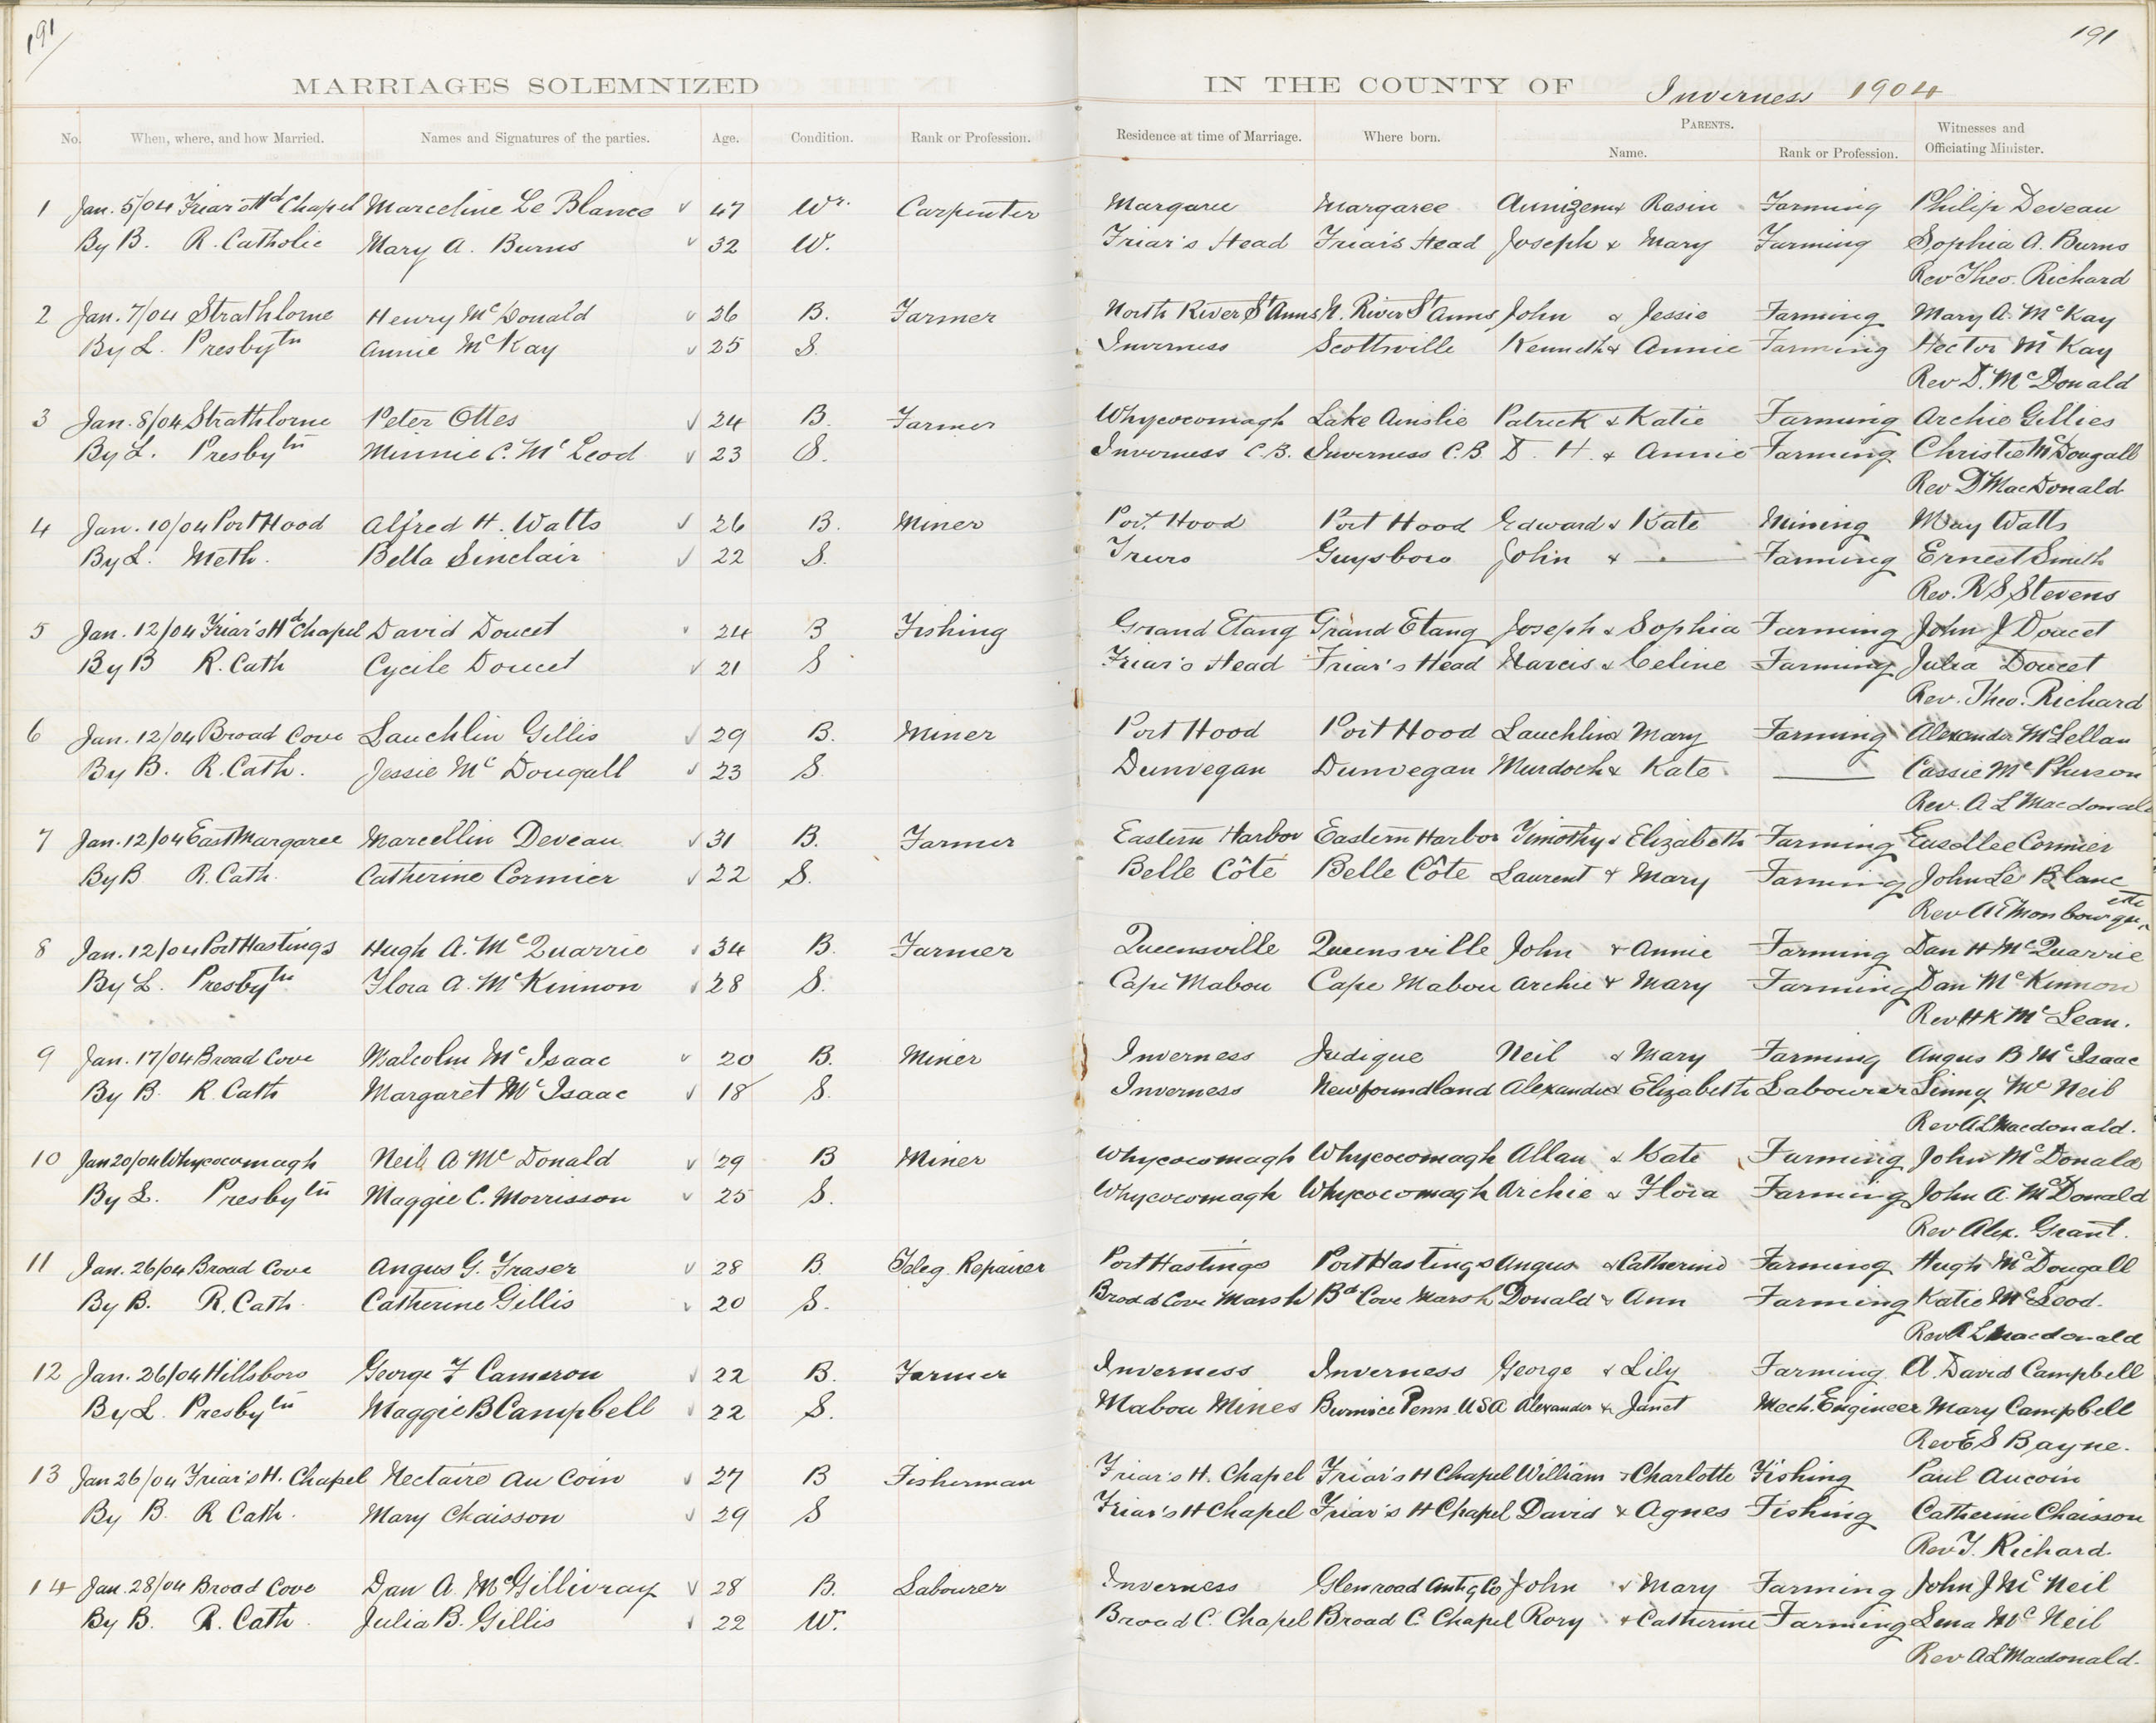 191 191
MARRIAGES SOLEMNIZED IN THE COUNTY OF Inverness 1904
No. When, where, and how Married. Names and Signatures of the parties. Age. Condition. Rank or Profession. Residence at time of Marriage. Where born. PARENTS. Name. Rank or Profession. Witnesses and Officiating Minister.
1 Jan. 5/04 Friar's Hd Chapel Marceline Le Blance 47 Wr. Carpenter Margaree Margaree & Rosin Farming Philip Deveau
By B. R. Catholic Mary A. Burns 32 W. Friar's Head Friar's Head Joseph & Mary Farming Sophia A. Burns
Rev Theo. Richard
2 Jan. 7/04 Strathlorne Henry McDonald 26 B. Farmer North River St Anns N. River St Anns John & Jessie Farming Mary A. McKay
By L. Presbytn Annie McKay 25 S. Inverness Scottsville Kenneth & Annie Farming Hector McKay
Rev D. McDonald
3 Jan. 8/04 Strathlorne Peter Ottes 24 B. Farmer Whycocomagh Lake Ainslie Patrick & Katie Farming Archie Gillies
By L. Presbytn Minnie C. McLeod 23 S. Inverness C.B. Inverness C.B. D. H. & Annie Farming Christie McDougall
Rev D MacDonald
4 Jan. 10/04 Port Hood Alfred H. Watts 26 B. Miner Port Hood Port Hood Edward & Kate Mining May Watts
By L. Meth. Bella Sinclair 22 S. Truro Guysboro John & — Farming Ernest Smith
Rev. R S Stevens
5 Jan. 12/04 Friar's Hd Chapel David Doucet 24 B Fishing Grand Etang Grand Etang Joseph & Sophia Farming John J Doucet
By B R. Cath Cycile Doucet 21 S Friar's Head Friar's Head Narcis & Celine Farming Julia Doucet
Rev. Theo. Richard
6 Jan. 12/04 Broad Cove Lauchlin Gillis 29 B. Miner Port Hood Port Hood Lauchlin & Mary Farming Alexander McLellan
By B. R. Cath. Jessie McDougall 23 S. Dunvegan Dunvegan Murdoch & Kate — Cassie McPherson
Rev. A L Macdonald
7 Jan. 12/04 East Margaree Marcellin Deveau 31 B. Farmer Eastern Harbor Eastern Harbor Timothy & Elizabeth Farming Cormier
By B R. Cath. Catherine Cormier 22 S. Belle Côte Belle Côte Laurent & Mary Farming John Le Blanc
Rev A E Monbourquette
8 Jan. 12/04 Port Hastings Hugh A. McQuarrie 34 B. Farmer Queensville Queensville John & Annie Farming Dan H McQuarrie
By L. Presbytn Flora A. McKinnon 28 S. Cape Mabou Cape Mabou Archie & Mary Farming Dan McKinnon
Rev H K McLean.
9 Jan. 17/04 Broad Cove Malcolm McIsaac 20 B. Miner Inverness Judique Neil & Mary Farming Angus B McIsaac
By B. R Cath Margaret McIsaac 18 S. Inverness Newfoundland Alexander & Elizabeth Labourer Sinny McNeil
Rev A L Macdonald.
10 Jan 20/04 Whycocomagh Neil A McDonald 29 B Miner Whycocomagh Whycocomagh Allan & Kate Farming John McDonald
By L. Presbytn Maggie C. Morrisson 25 S. Whycocomagh Whycocomagh Archie & Flora Farming John A. McDonald
Rev Alex. Grant.
11 Jan. 26/04 Broad Cove Angus G. Fraser 28 B. Teleg. Repairer Port Hastings Port Hastings Angus & Catherine Farming Hugh McDougall
By B. R. Cath. Catherine Gillis 20 S. Broad Cove Marsh Bd Cove Marsh Donald & Ann Farming Katie McLeod.
Rev A L Macdonald
12 Jan. 26/04 Hillsboro George F Cameron 22 B. Farmer Inverness Inverness George & Lily Farming A. David Campbell
By L. Presbytn Maggie B Campbell 22 S. Mabou Mines Burnice Penn. USA Alexander & Janet Mech. Engineer Mary Campbell
Rev E S Bayne.
13 Jan 26/04 Friar's H. Chapel Nectaire Au Coin 27 B Fisherman Friar's H. Chapel Friar's H Chapel William & Charlotte Fishing Paul Aucoin
By B. R Cath. Mary Chaisson 29 S Friar's H Chapel Friar's H Chapel David & Agnes Fishing Catherine Chaisson
Rev T. Richard.
14 Jan. 28/04 Broad Cove Dan A. McGillivray 28 B. Labourer Inverness Glenroad Antig Co John & Mary Farming John J McNeil
By B. R. Cath. Julia B. Gillis 22 W. Broad C. Chapel Broad C. Chapel Rory & Catherine Farming Lena McNeil
Rev A L Macdonald.